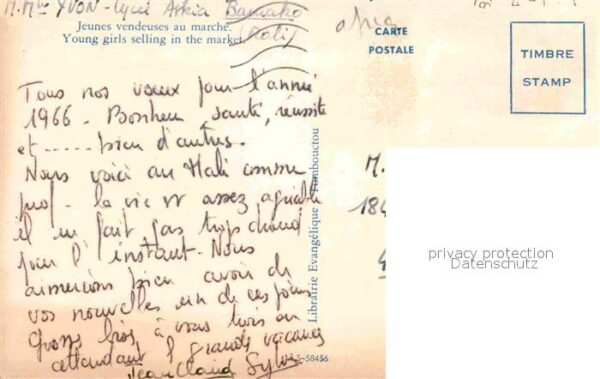 M. Mme YVON - Lycée Askia Bamako
(Mali)
Jeunes vendeuses au marché.
Young girls selling in the market.
CARTE
POSTALE
TIMBRE
STAMP
Tous nos vœux pour l'année
1966 - Bonheur, santé, réussite
et ----- bien d'autres.
Nous voici au Mali comme
prof - la vie est assez agréable
il ne fait pas trop chaud
pour l'instant - Nous
aimerions bien avoir de
vos nouvelles un de ces jours
Grosses bises à vous trois en
attendant les grandes vacances
Jean Claud Sylvie
Librairie Evangélique Tombouctou
S-58456
M.
privacy protection
Datenschutz